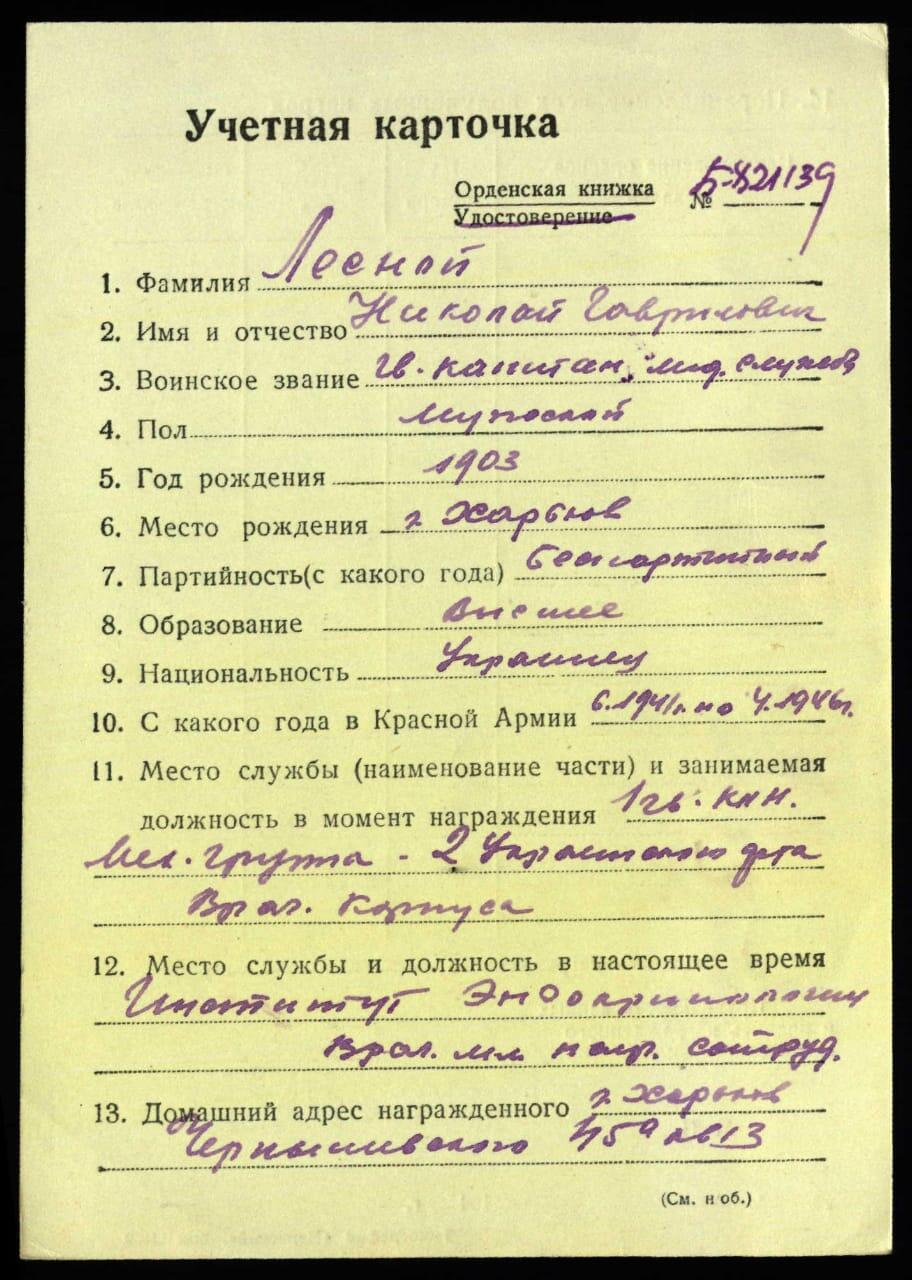 Учетная карточка
Орденская книжка № Б-821139
Удостоверение
1. Фамилия Лесной
2. Имя и отчество Николай Гаврилович
3. Воинское звание гв. капитан мед. службы
4. Пол Мужской
5. Год рождения 1903
6. Место рождения г. Харьков
7. Партийность(с какого года) Беспартийный
8. Образование Высшее
9. Национальность Украинец
10. С какого года в Красной Армии 6.1941г. по 4.1946г.
11. Место службы (наименование части) и занимаемая
должность в момент награждения 1 гв. кон.
Мех. группа - 2 Украинского фр-та
Врач. корпуса
12. Место службы и должность в настоящее время
Институт Эндокринологии
Врач. мл. научн. сотруд.
13. Домашний адрес награжденного г. Харьков
Чернышевского 45а кв 13
(См. н об.)